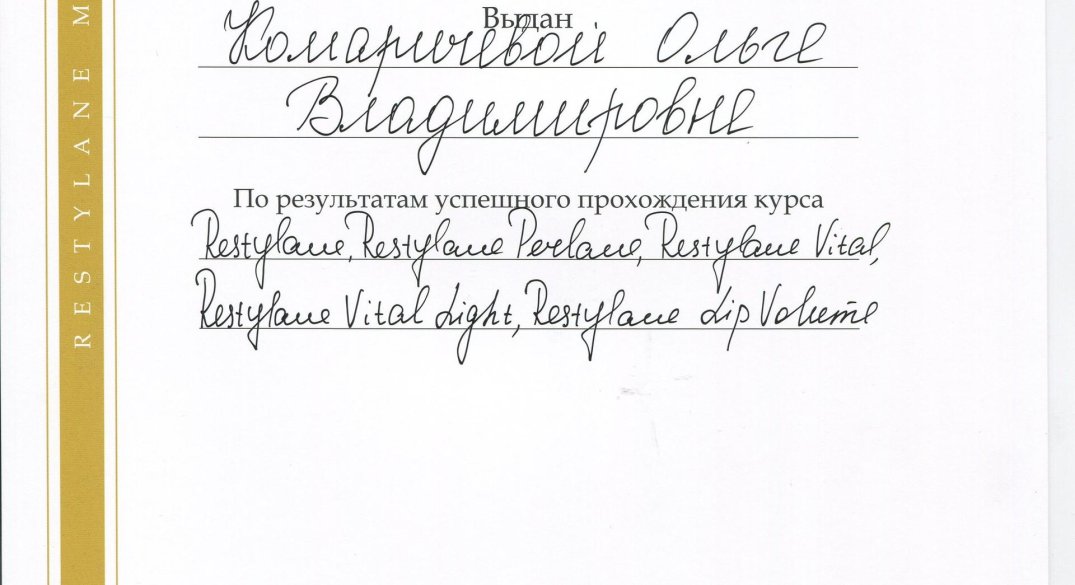 RESTYLANE M
Выдан
Комаричевой Ольге
Владимировне
По результатам успешного прохождения курса
Restylane, Restylane Perlane, Restylane Vital,
Restylane Vital Light, Restylane Lip Volume